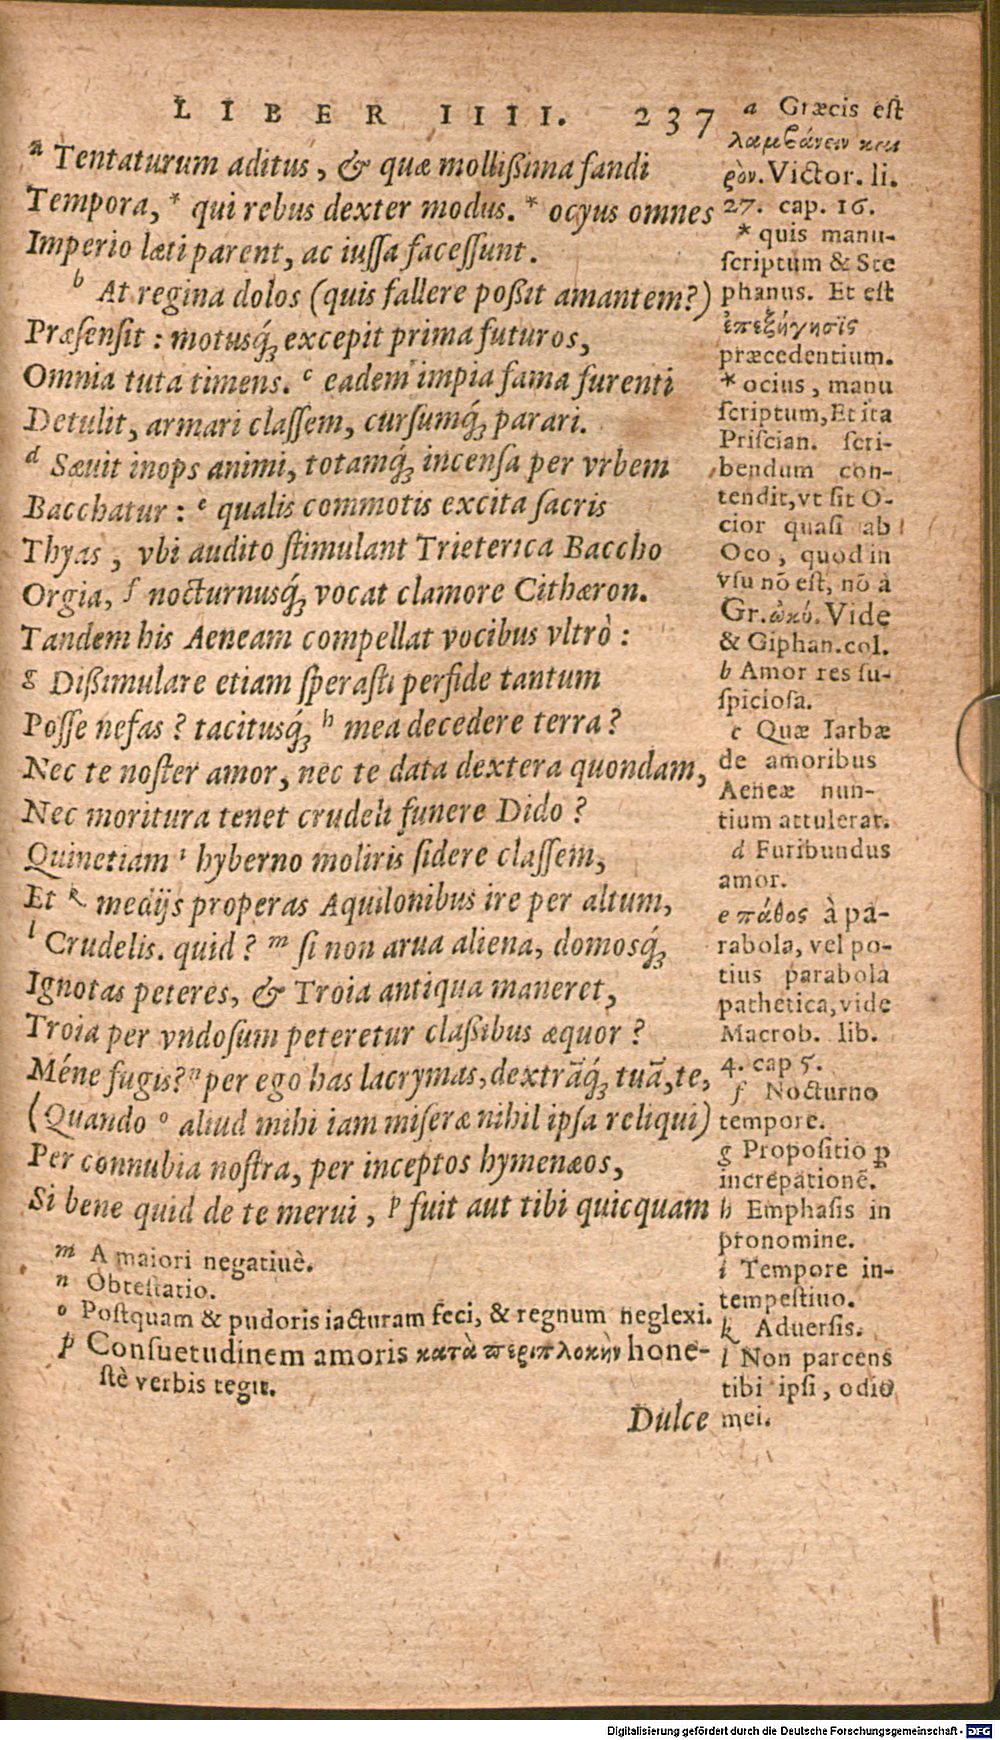 LIBER IIII. 237
a Tentaturum aditus, & quæ mollißima fandi
Tempora, * qui rebus dexter modus. * ocyus omnes
Imperio læti parent, ac iuſſa faceſſunt.
b At regina dolos (quis fallere poßit amantem?)
Præſenſit : motusq́; excepit prima futuros,
Omnia tuta timens. c eadem impia fama furenti
Detulit, armari claſſem, curſumq́; parari.
d Sæuit inops animi, totamq́; incenſa per vrbem
Bacchatur : e qualis commotis excita ſacris
Thyas, vbi audito ſtimulant Trieterica Baccho
Orgia, f nocturnusq́; vocat clamore Cithæron.
Tandem his Aeneam compellat vocibus vltrò :
g Dißimulare etiam ſperaſti perfide tantum
Poſſe nefas ? tacitusq́; h mea decedere terra ?
Nec te noſter amor, nec te data dextera quondam,
Nec moritura tenet crudeli funere Dido ?
Quinetiam i hyberno moliris ſidere claſſem,
Et k medijs properas Aquilonibus ire per altum,
l Crudelis. quid ? m ſi non arua aliena, domosq́;
Ignotas peteres, & Troia antiqua maneret,
Troia per vndoſum peteretur claßibus æquor ?
Méne fugis? n per ego has lacrymas, dextrãq́; tuã, te,
(Quando o aliud mihi iam miſeræ nihil ipſa reliqui)
Per connubia noſtra, per inceptos hymenæos,
Si bene quid de te merui, p fuit aut tibi quicquam
m A maiori negatiuè.
n Obteſtatio.
o Poſtquam & pudoris iacturam feci, & regnum neglexi.
p Conſuetudinem amoris κατὰ περιπλοκὴν hone-
ſtè verbis tegit.
Dulce
a Græcis eſt
λαμβάνειν και
ρὸν. Victor. li.
27. cap. 16.
* quis manu-
ſcriptum & Ste
phanus. Et eſt
ἐπεξήγησϊς
præcedentium.
* ocius, manu
ſcriptum, Et ita
Priſcian. ſcri-
bendum con-
tendit, vt ſit O-
cior quaſi ab
Oco, quod in
vſu nõ eſt, nõ à
Gr. ὠκύ. Vide
& Giphan. col.
b Amor res ſu-
ſpicioſa.
c Quæ Iarbæ
de amoribus
Aeneæ nun-
tium attulerat.
d Furibundus
amor.
e πάθος à pa-
rabola, vel po-
tius parabola
pathetica, vide
Macrob. lib.
4. cap 5.
f Nocturno
tempore.
g Propoſitio ꝑ
increpationẽ.
h Emphaſis in
pronomine.
i Tempore in-
tempeſtiuo.
k Aduerſis.
l Non parcens
tibi ipſi, odio
mei.
Digitalisierung gefördert durch die Deutsche Forschungsgemeinschaft - DFG